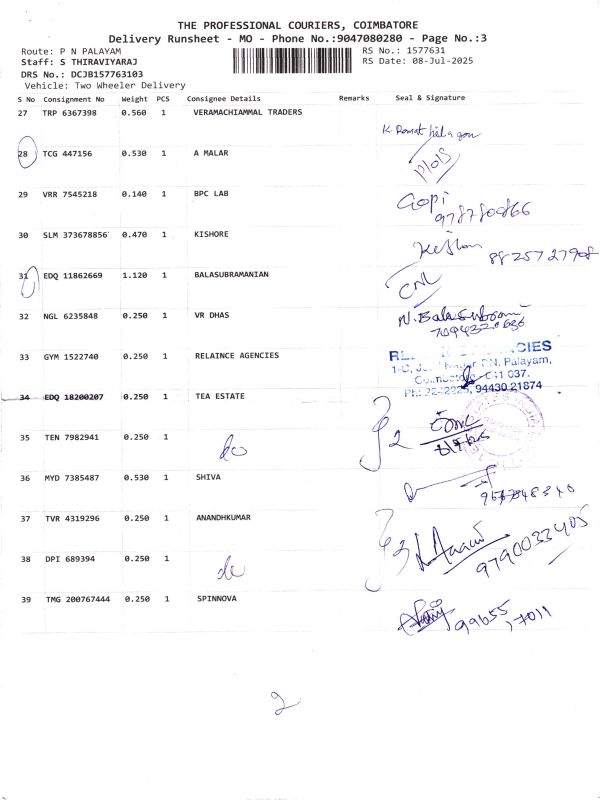 THE PROFESSIONAL COURIERS, COIMBATORE
Delivery Runsheet - MO - Phone No.:9047080280 - Page No.:3
Route: P N PALAYAM
RS No.: 1577631
Staff: S THIRAVIYARAJ
RS Date: 08-Jul-2025
DRS No.: DCJB157763103
Vehicle: Two Wheeler Delivery
S No Consignment No Weight PCS Consignee Details Remarks Seal & Signature
27 TRP 6367398 0.560 1 VERAMACHIAMMAL TRADERS
28 TCG 447156 0.530 1 A MALAR
29 VRR 7545218 0.140 1 BPC LAB Gopi
9787780866
30 SLM 373678856 0.470 1 KISHORE
8825727908
31 EDQ 11862669 1.120 1 BALASUBRAMANIAN CNL
32 NGL 6235848 0.250 1 VR DHAS N. Balasubramani
33 GYM 1522740 0.250 1 RELAINCE AGENCIES
Palayam,
037.
94430 21874
34 EDQ 18200207 0.250 1 TEA ESTATE 2
35 TEN 7982941 0.250 1 do
36 MYD 7385487 0.530 1 SHIVA
37 TVR 4319296 0.250 1 ANANDHKUMAR
9790033405
38 DPI 689394 0.250 1 do
39 TMG 200767444 0.250 1 SPINNOVA
99655 17011
2